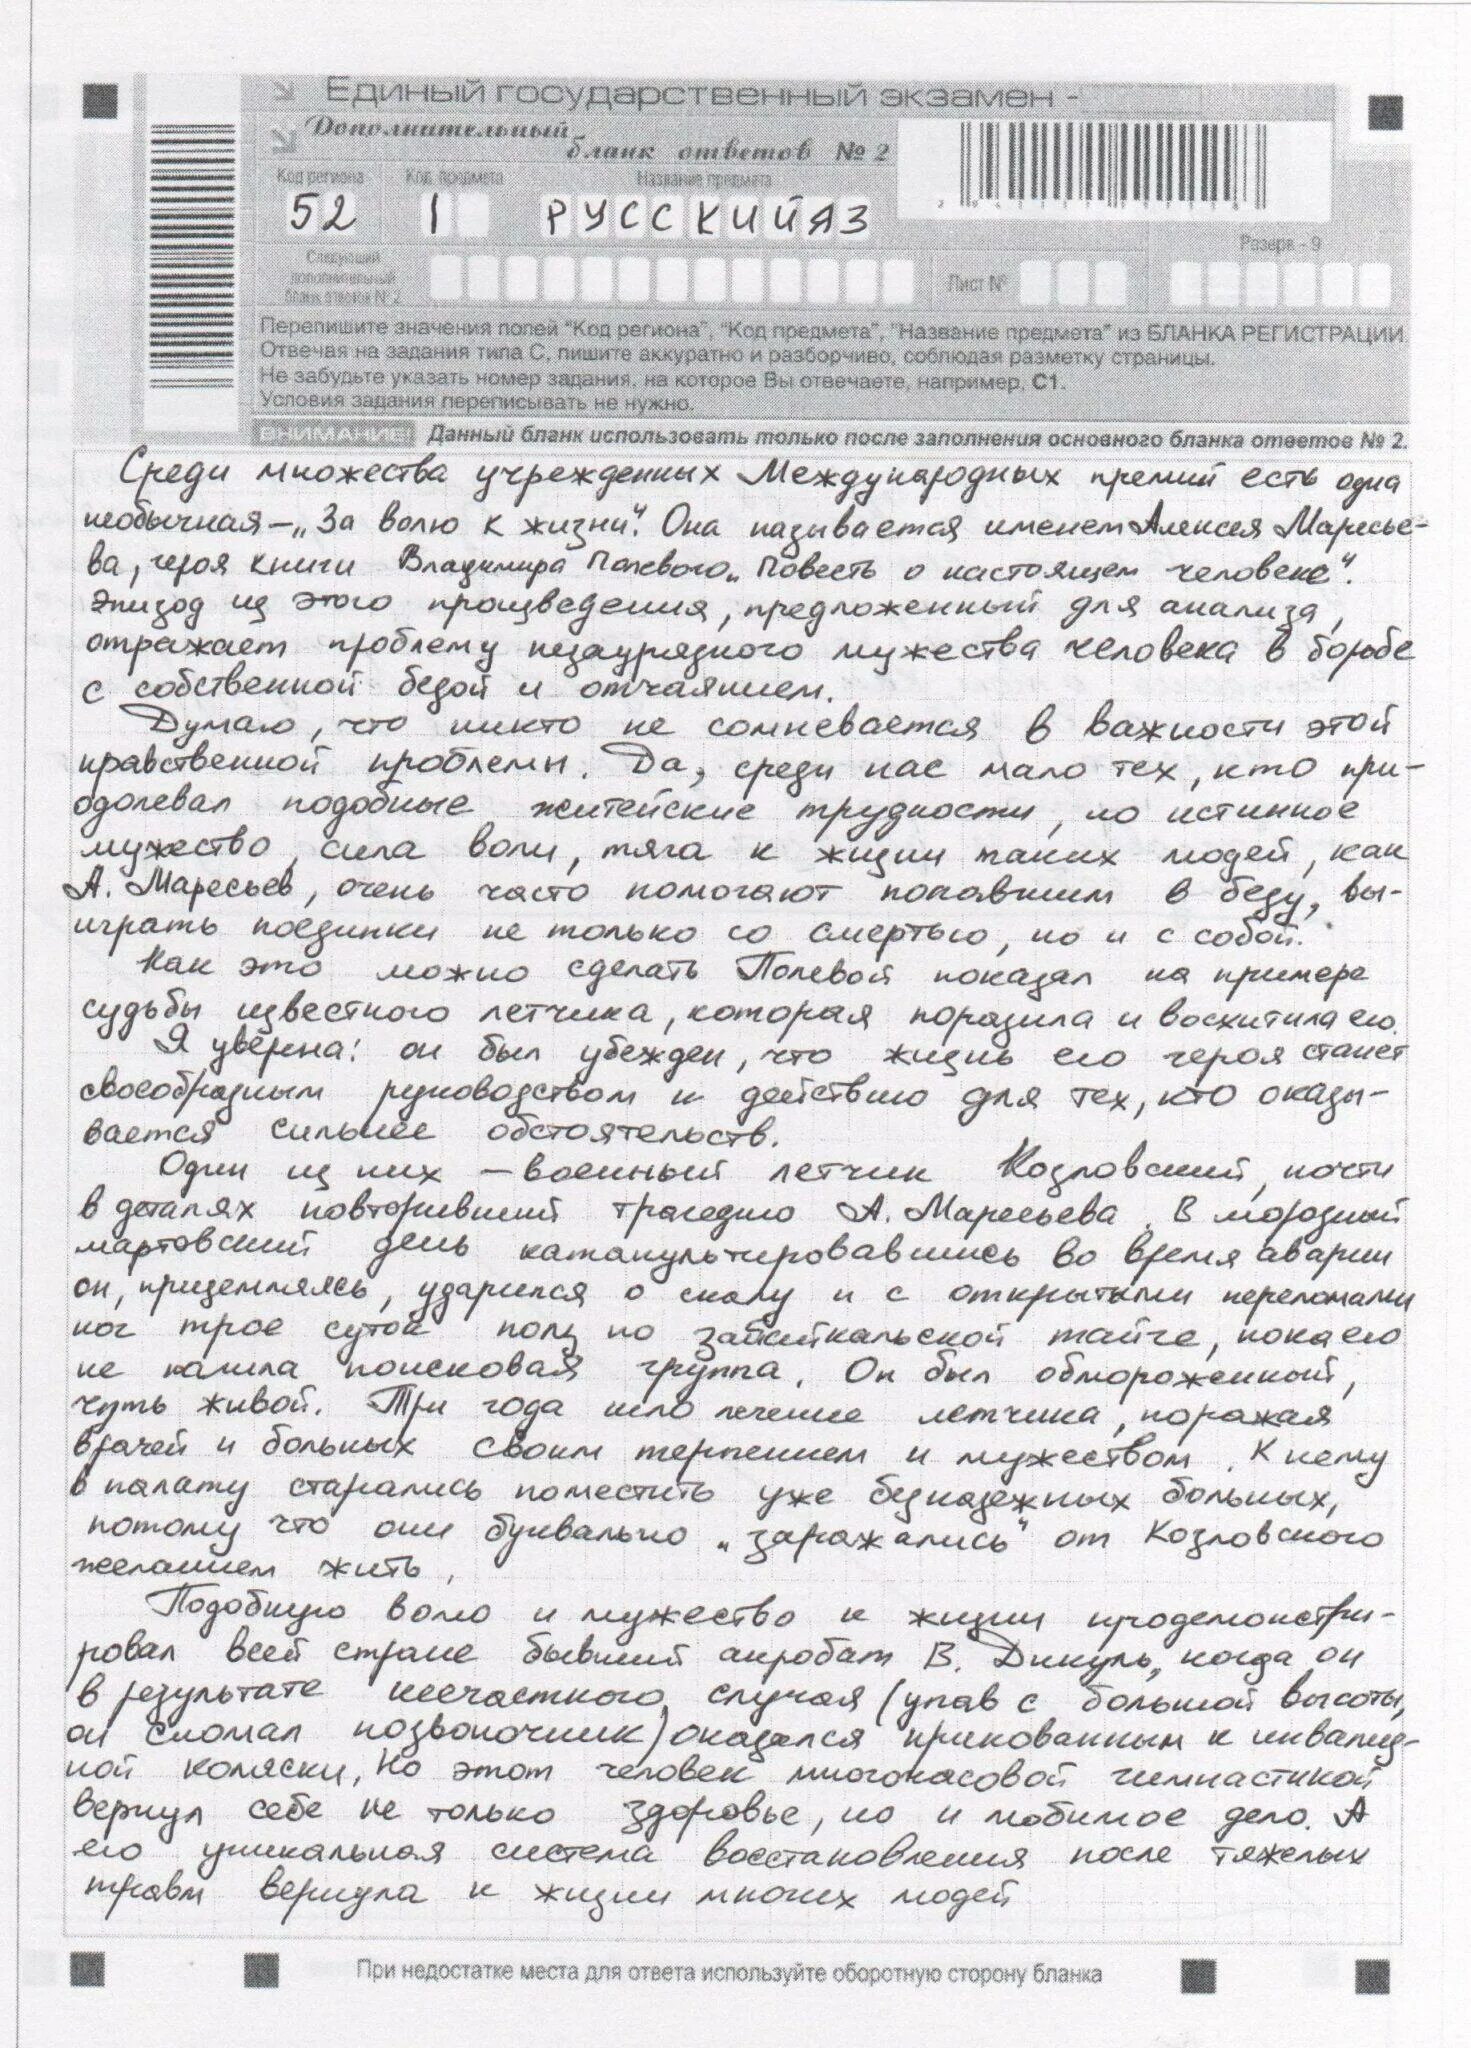 Единый государственный экзамен -
Дополнительный
бланк ответов № 2
Код региона Код предмета Название предмета
52 1 РУССКИЙ ЯЗ
Резерв - 9
Следующий
дополнительный
бланк ответов № 2
Лист №
Перепишите значения полей "Код региона", "Код предмета", "Название предмета" из БЛАНКА РЕГИСТРАЦИИ.
Отвечая на задания типа С, пишите аккуратно и разборчиво, соблюдая разметку страницы.
Не забудьте указать номер задания, на которое Вы отвечаете, например, С1.
Условия задания переписывать не нужно.
ВНИМАНИЕ! Данный бланк использовать только после заполнения основного бланка ответов № 2.
Среди множества учрежденных Международных премий есть одна
необычная – „За волю к жизни“. Она называется именем Алексея Маресье-
ва, героя книги Владимира Полевого „Повесть о настоящем человеке“.
Эпизод из этого произведения, предложенный для анализа,
отражает проблему незаурядного мужества человека в борьбе
с собственной бедой и отчаянием.
Думаю, что никто не сомневается в важности этой
нравственной проблемы. Да, среди нас мало тех, кто при-
одолевал подобные житейские трудности, но истинное
мужество, сила воли, тяга к жизни таких людей, как
А. Маресьев, очень часто помогают попавшим в беду, вы-
играть поединки не только со смертью, но и с собой.
Как это можно сделать Полевой показал на примере
судьбы известного летчика, которая поразила и восхитила его.
Я уверена: он был убежден, что жизнь его героя станет
своеобразным руководством к действию для тех, кто оказы-
вается сильнее обстоятельств.
Один из них – военный летчик Козловский, почти
в деталях повторивший трагедию А. Маресьева. В морозный
мартовский день катапультировавшись во время аварии
он, приземляясь, ударился о скалу и с открытыми переломами
ног трое суток полз по забайкальской тайге, пока его
не нашла поисковая группа. Он был обмороженный,
чуть живой. Три года шло лечение летчика, поражая
врачей и больных своим терпением и мужеством. К нему
в палату старались поместить уже безнадежных больных,
потому что они буквально „заражались“ от Козловского
желанием жить.
Подобную волю и мужество к жизни продемонстри-
ровал всей стране бывший акробат В. Дикуль, когда он
в результате несчастного случая (упав с большой высоты,
он сломал позвоночник) оказался прикованным к инвалид-
ной коляски. Но этот человек многочасовой гимнастикой
вернул себе не только здоровье, но и любимое дело. А
его уникальная система восстановления после тяжелых
травм вернула к жизни многих людей
При недостатке места для ответа используйте оборотную сторону бланка